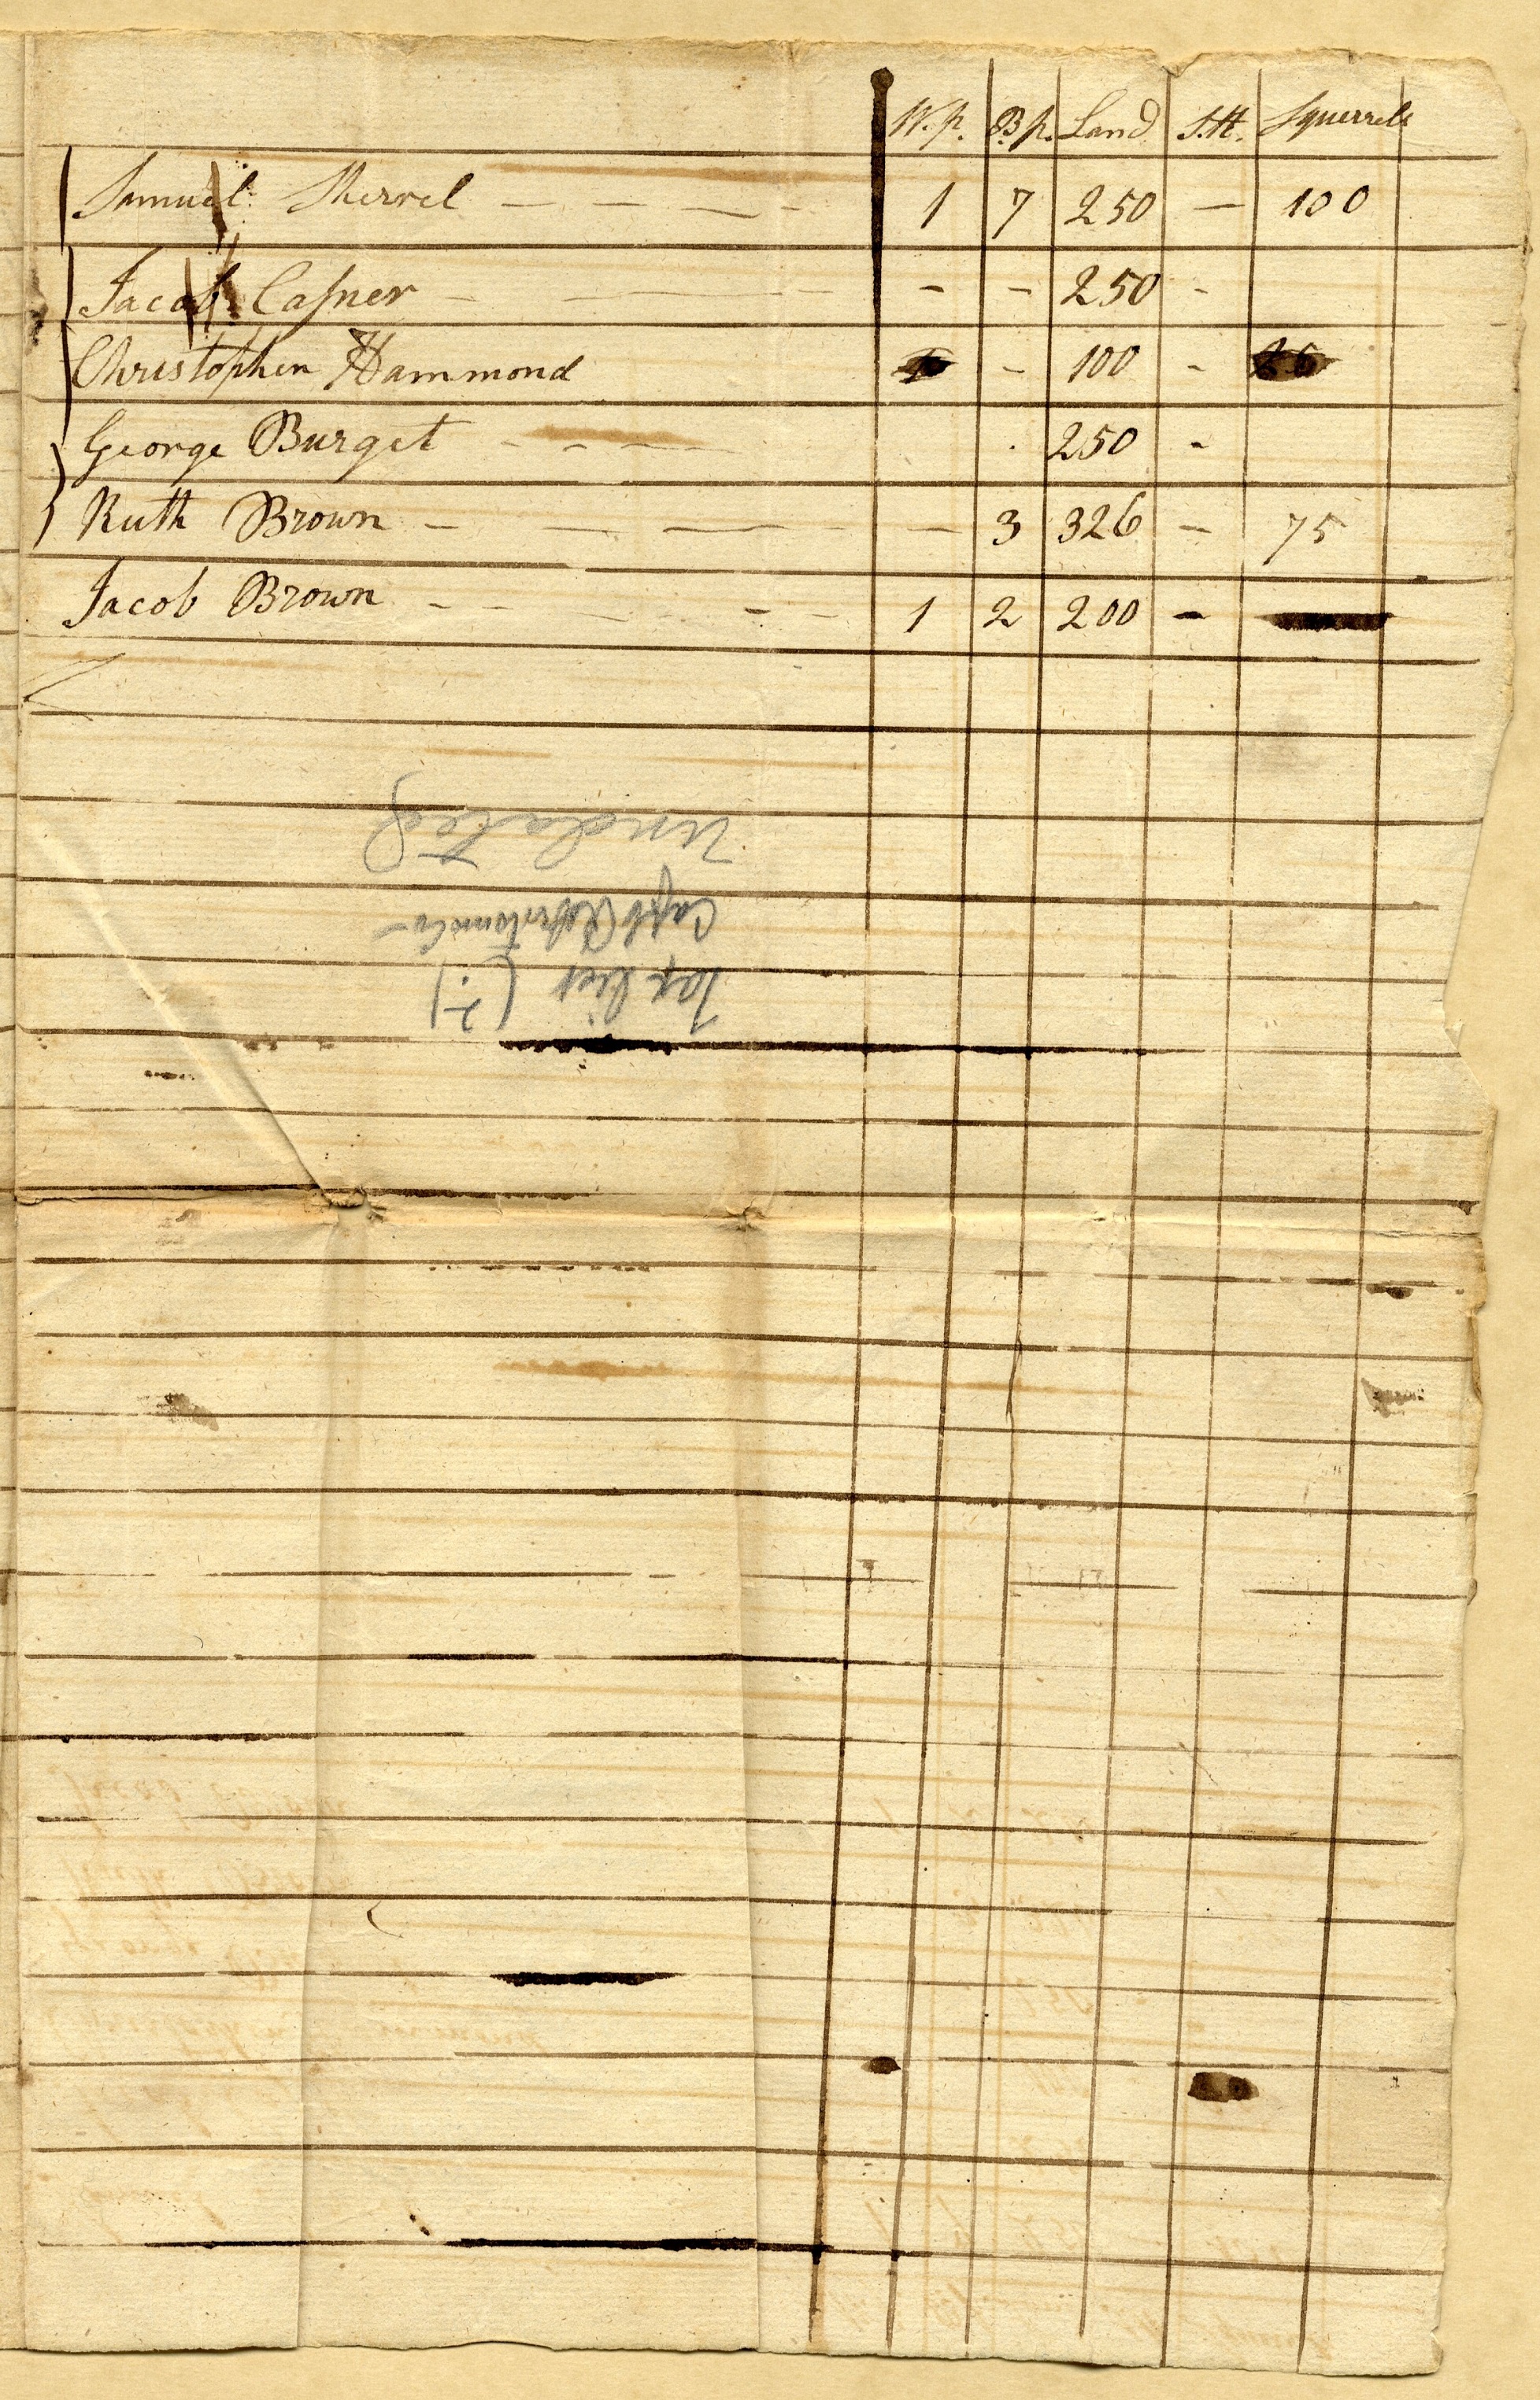 W.p. B.p. Land S.H. Squerrels
Samuel Sherrel — — — - 1 7 250 — 100
Jacob Casner - — — - - - 250 -
Christopher Hammond 1 - 100 - 25
George Burget - - - — . 250 -
Ruth Brown - — — - — 3 326 - 75
Jacob Brown - - - - 1 2 200 -
Tax List (?)
Capt
Undated